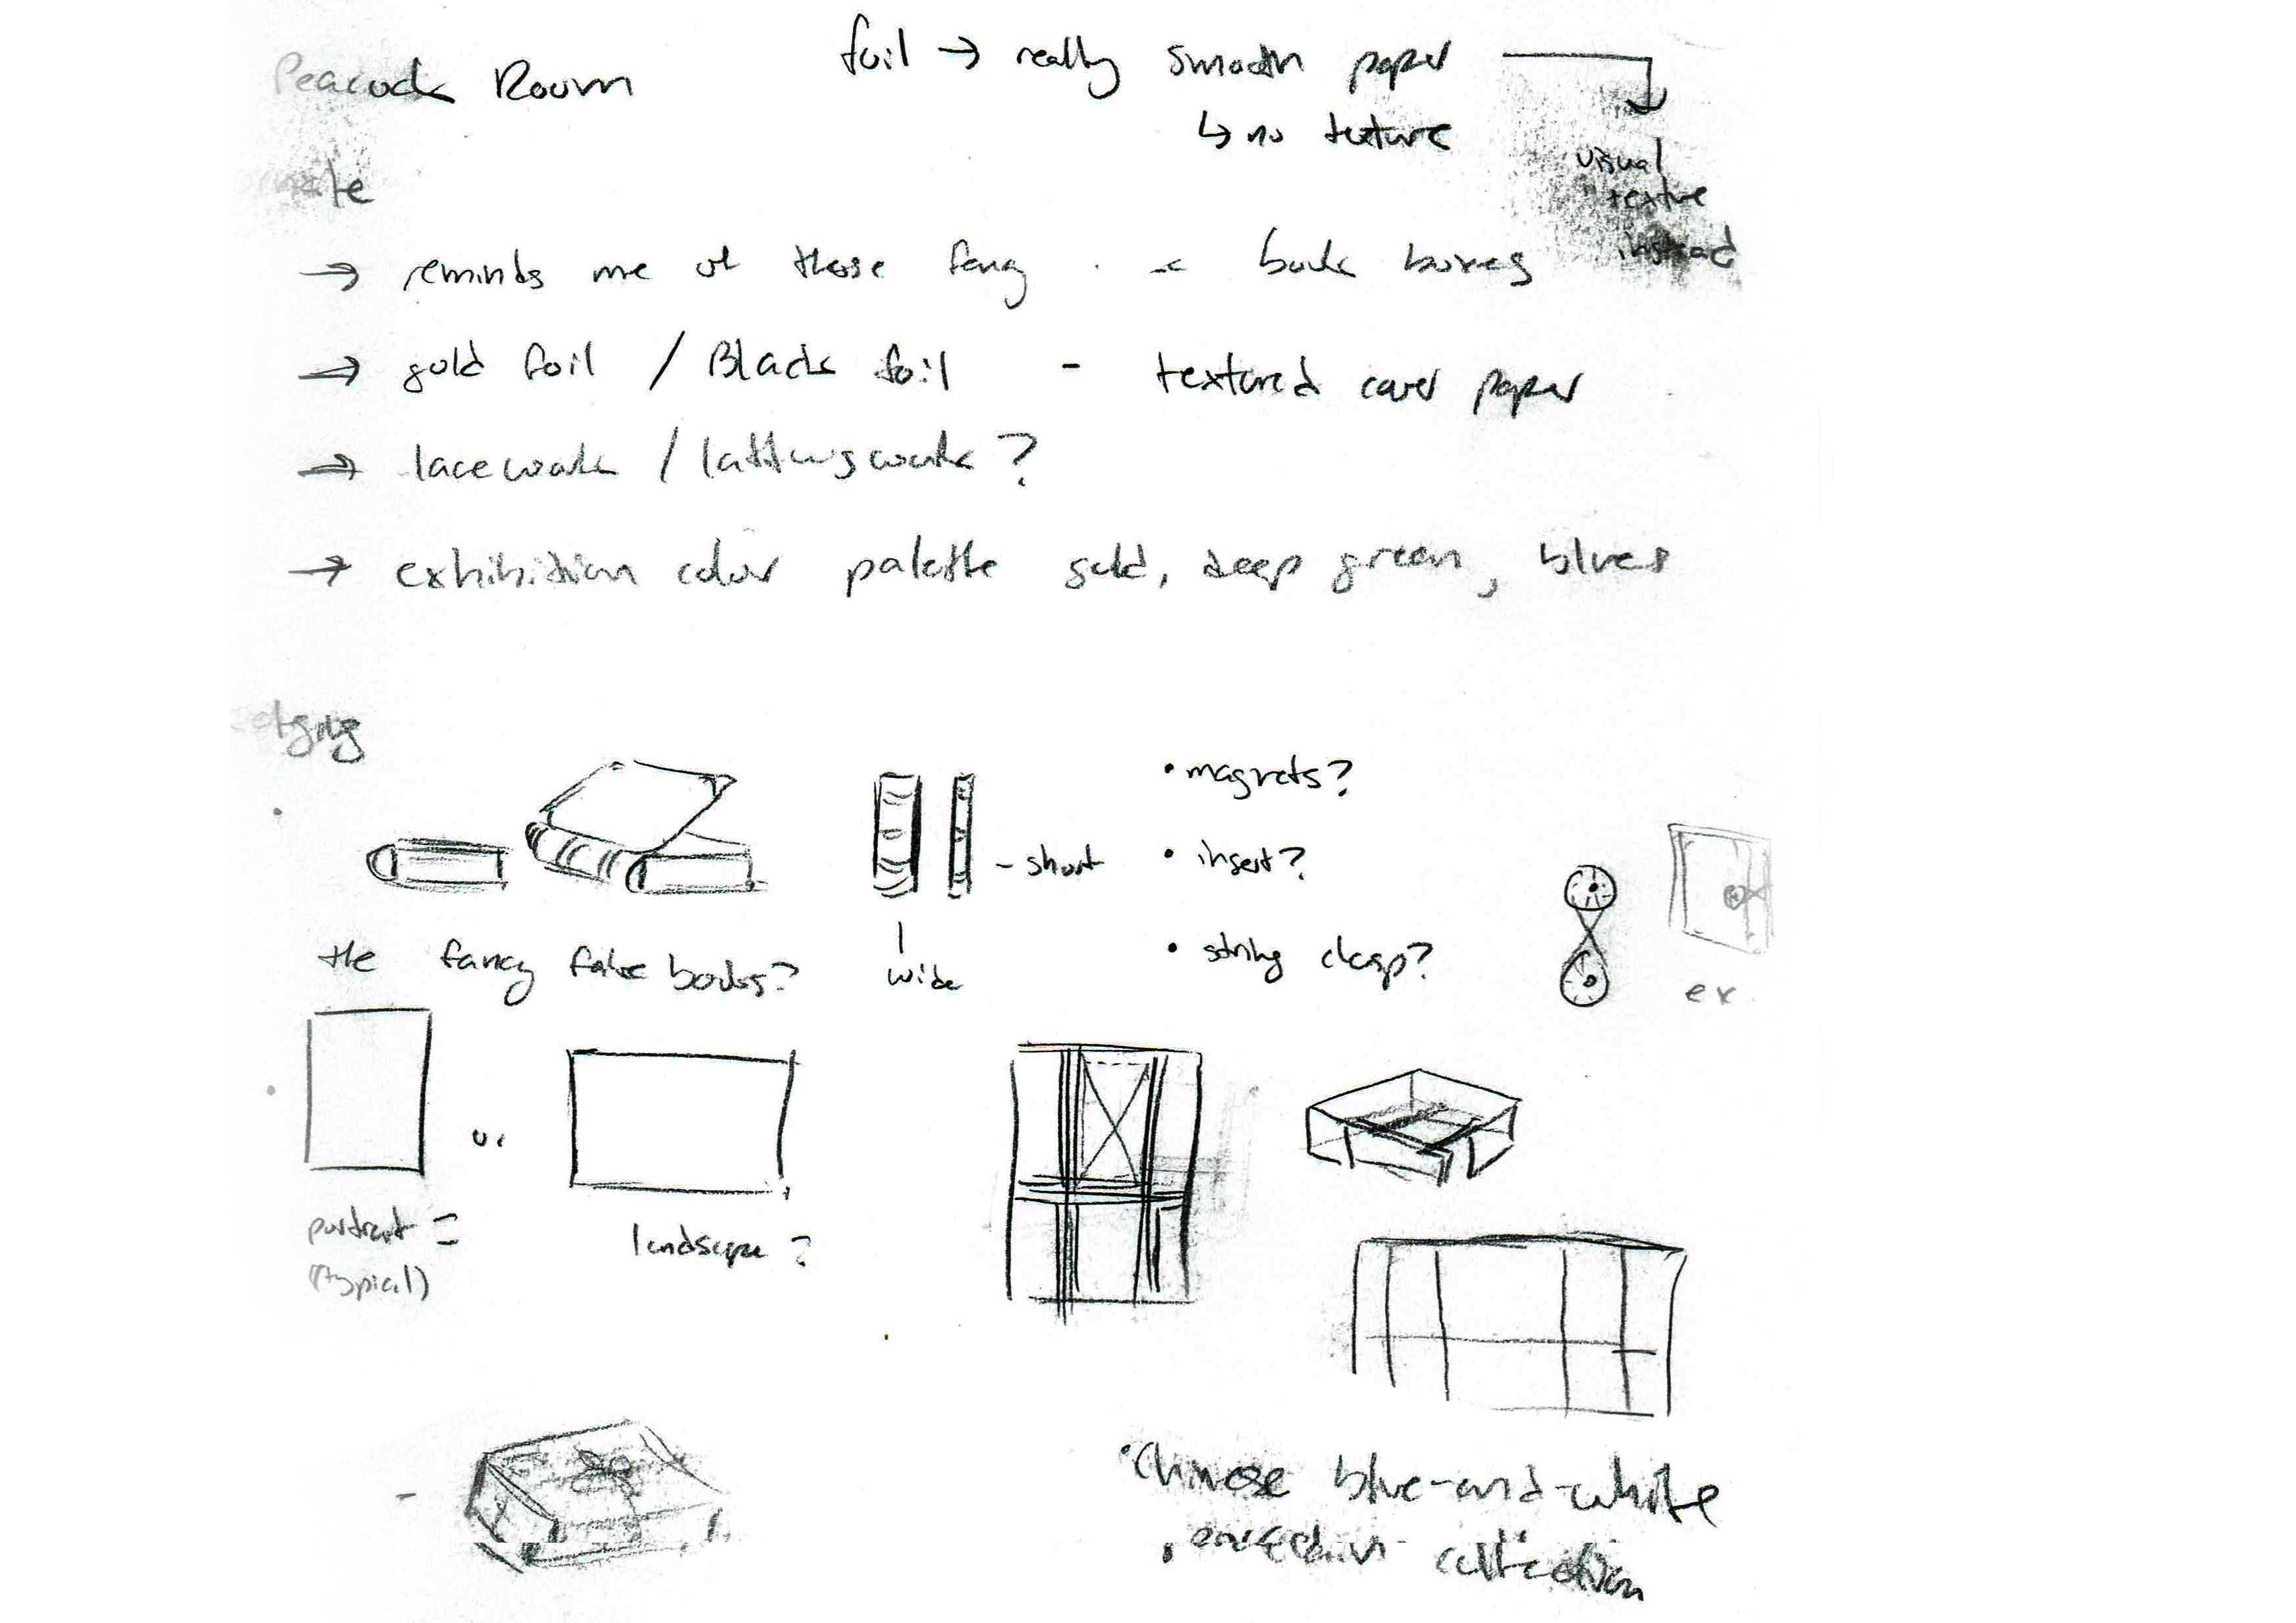 Peacock Room
foil → really smooth paper
↳ no texture
visual
texture
instead
→ reminds me of those fancy book boxes
→ gold foil / Black foil - textured cover paper
→ lacework / latticework?
→ exhibition color palette gold, deep green, blues
• magnets?
- short
• insert?
the fancy false books?
wide
• string clasp?
ex.
or
portrait
(typical)
landscape?
• Chinese blue-and-white
porcelain collection